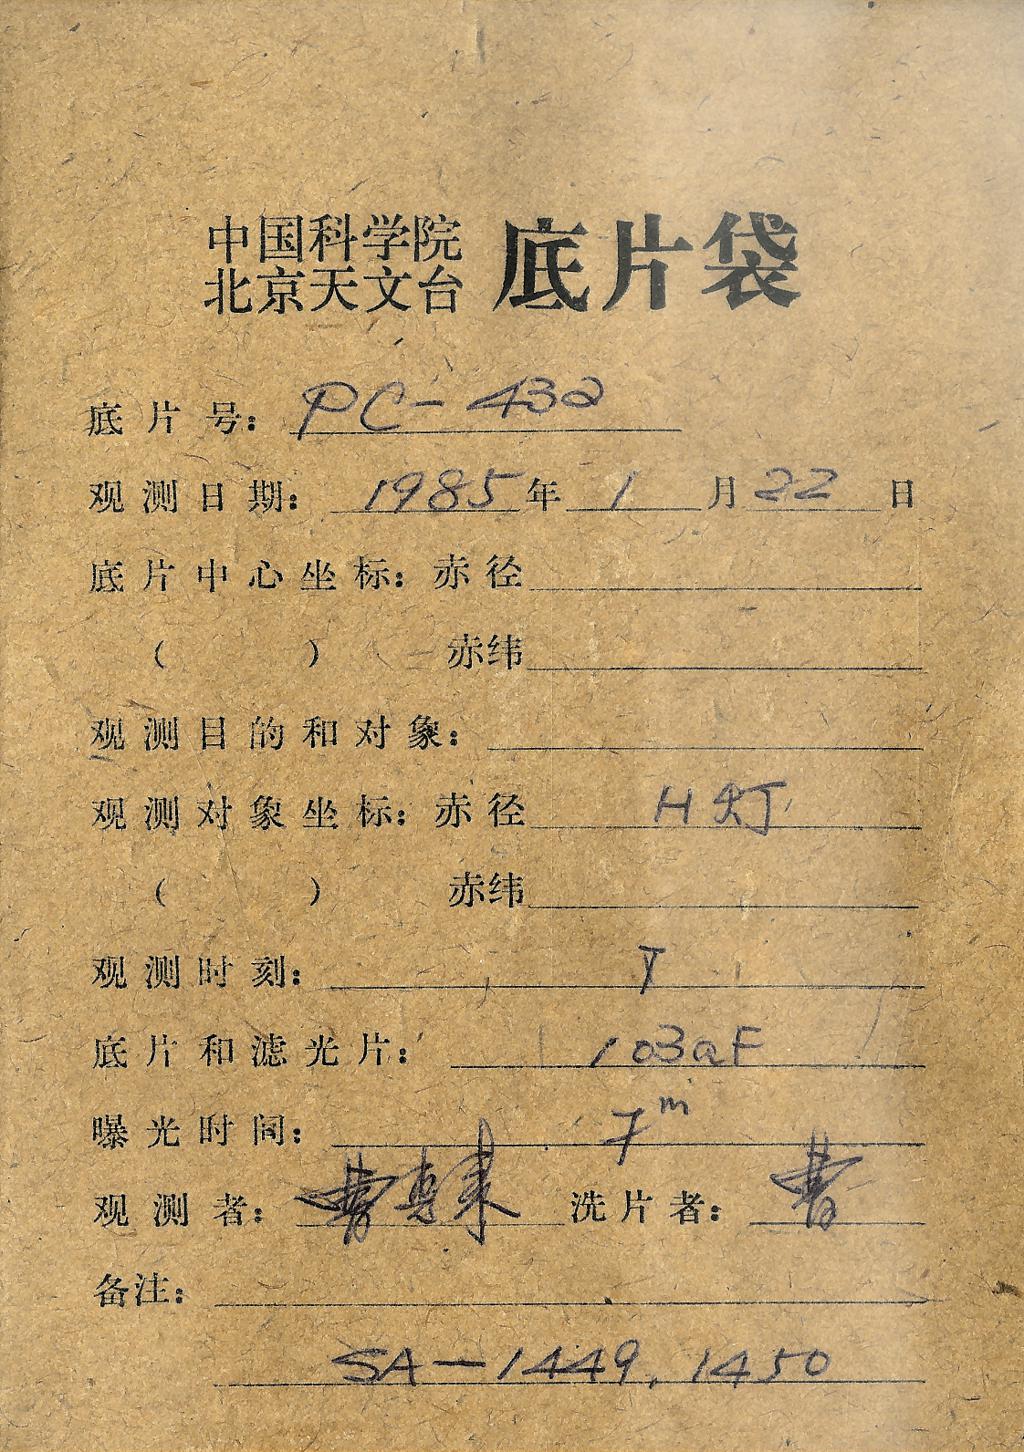 中国科学院
北京天文台 底片袋
底片号： PC-432
观测日期： 1985年 1 月 22 日
底片中心坐标：赤径
（ ） 赤纬
观测目的和对象：
观测对象坐标：赤径 H灯
（ ） 赤纬
观测时刻：
底片和滤光片： 103aF
曝光时间： 7m
观测者：曹 洗片者：曹
备注：
SA-1449, 1450